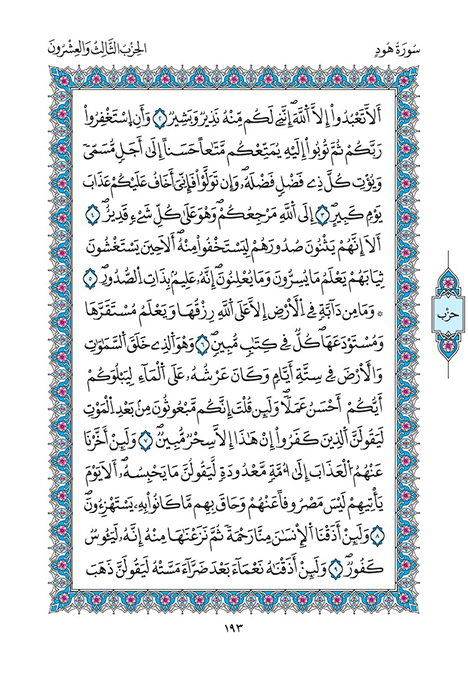 سُورَةُ هُودٍ
الحِزْبُ الثَّالِثُ وَالعِشْرُونَ
أَلَّا تَعْبُدُوٓاْ إِلَّا اَ۬للَّهَۖ إِنَّنِے لَكُم مِّنْهُ نَذِيرٞ وَبَشِيرٞۖ ٢ وَأَنِ اِ۪سْتَغْفِرُواْ
رَبَّكُمْ ثُمَّ تُوبُوٓاْ إِلَيْهِ يُمَتِّعْكُم مَّتَٰعاً حَسَناً إِلَىٰٓ أَجَلٖ مُّسَمّىٗ
وَيُوتِ كُلَّ ذِے فَضْلٖ فَضْلَهُۥۖ وَإِن تَوَلَّوْاْ فَإِنِّيَ أَخَافُ عَلَيْكُمْ عَذَابَ
يَوْمٖ كَبِيرٍۖ ٣ اِلَى اَ۬للَّهِ مَرْجِعُكُمْۖ وَهُوَ عَلَىٰ كُلِّ شَےْءٖ قَدِيرٌۖ ٤
اَلَآ إِنَّهُمْ يَثْنُونَ صُدُورَهُمْ لِيَسْتَخْفُواْ مِنْهُۖ أَلَا حِينَ يَسْتَغْشُونَ
ثِيَابَهُمْ يَعْلَمُ مَا يُسِرُّونَ وَمَا يُعْلِنُونَۖ إِنَّهُۥ عَلِيمُۢ بِذَاتِ اِ۬لصُّدُورِۖ ٥
۞ وَمَا مِن دَآبَّةٖ فِے اِ۬لَارْضِ إِلَّا عَلَى اَ۬للَّهِ رِزْقُهَا وَيَعْلَمُ مُسْتَقَرَّهَا
وَمُسْتَوْدَعَهَاۖ كُلّٞ فِے كِتَٰبٖ مُّبِينٖۖ ٦ وَهُوَ اَ۬لذِے خَلَقَ اَ۬لسَّمَٰوَٰتِ
وَالَارْضَ فِے سِتَّةِ أَيَّامٖ وَكَانَ عَرْشُهُۥ عَلَى اَ۬لْمَآءِ لِيَبْلُوَكُمُۥٓ
أَيُّكُمُۥٓ أَحْسَنُ عَمَلاٗۖ وَلَئِن قُلْتَ إِنَّكُم مَّبْعُوثُونَ مِنۢ بَعْدِ اِ۬لْمَوْتِ
لَيَقُولَنَّ اَ۬لذِينَ كَفَرُوٓاْ إِنْ هَٰذَآ إِلَّا سِحْرٞ مُّبِينٞۖ ٧ وَلَئِنَ اَخَّرْنَا
عَنْهُمُ اُ۬لْعَذَابَ إِلَىٰٓ أُمَّةٖ مَّعْدُودَةٖ لَّيَقُولُنَّ مَا يَحْبِسُهُۥٓۖ أَلَا يَوْمَ
يَاتِيهِمْ لَيْسَ مَصْرُوفاً عَنْهُمْ وَحَاقَ بِهِم مَّا كَانُواْ بِهِۦ يَسْتَهْزِءُونَۖ
٨ وَلَئِنَ اَذَقْنَا اَ۬لِانسَٰنَ مِنَّا رَحْمَةٗ ثُمَّ نَزَعْنَٰهَا مِنْهُ إِنَّهُۥ لَيَـُٔوسٞ
كَفُورٞۖ ٩ وَلَئِنَ اَذَقْنَٰهُ نَعْمَآءَ بَعْدَ ضَرَّآءَ مَسَّتْهُ لَيَقُولَنَّ ذَهَبَ
حزب
١٩٣